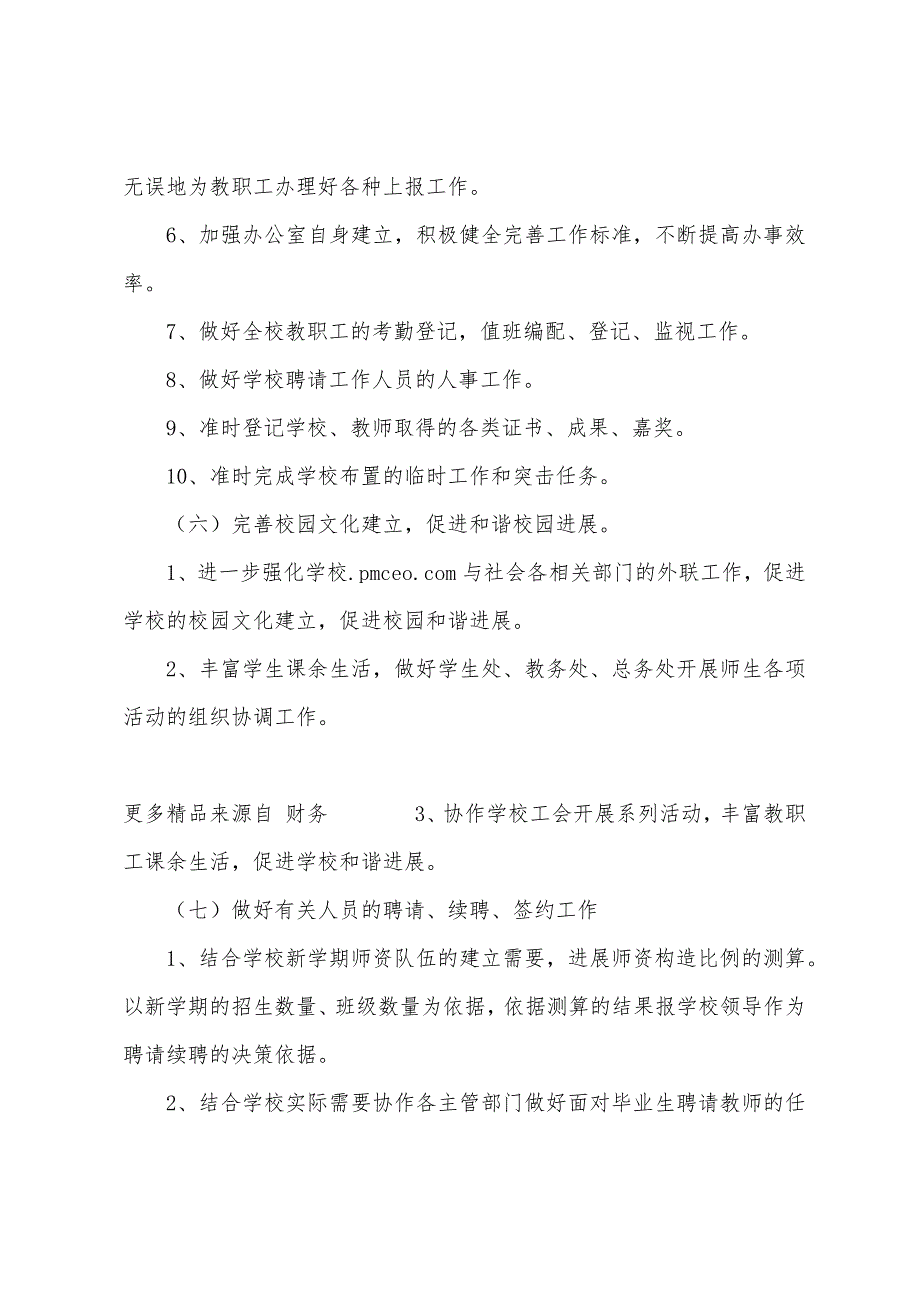 无误地为教职工办理好各种上报工作。
6、加强办公室自身建立，积极健全完善工作标准，不断提高办事效
率。
7、做好全校教职工的考勤登记，值班编配、登记、监视工作。
8、做好学校聘请工作人员的人事工作。
9、准时登记学校、教师取得的各类证书、成果、嘉奖。
10、准时完成学校布置的临时工作和突击任务。
（六）完善校园文化建立，促进和谐校园进展。
1、进一步强化学校.pmceo.com与社会各相关部门的外联工作，促进
学校的校园文化建立，促进校园和谐进展。
2、丰富学生课余生活，做好学生处、教务处、总务处开展师生各项
活动的组织协调工作。
更多精品来源自 财务 3、协作学校工会开展系列活动，丰富教职
工课余生活，促进学校和谐进展。
（七）做好有关人员的聘请、续聘、签约工作
1、结合学校新学期师资队伍的建立需要，进展师资构造比例的测算。
以新学期的招生数量、班级数量为依据，依据测算的结果报学校领导作为
聘请续聘的决策依据。
2、结合学校实际需要协作各主管部门做好面对毕业生聘请教师的任